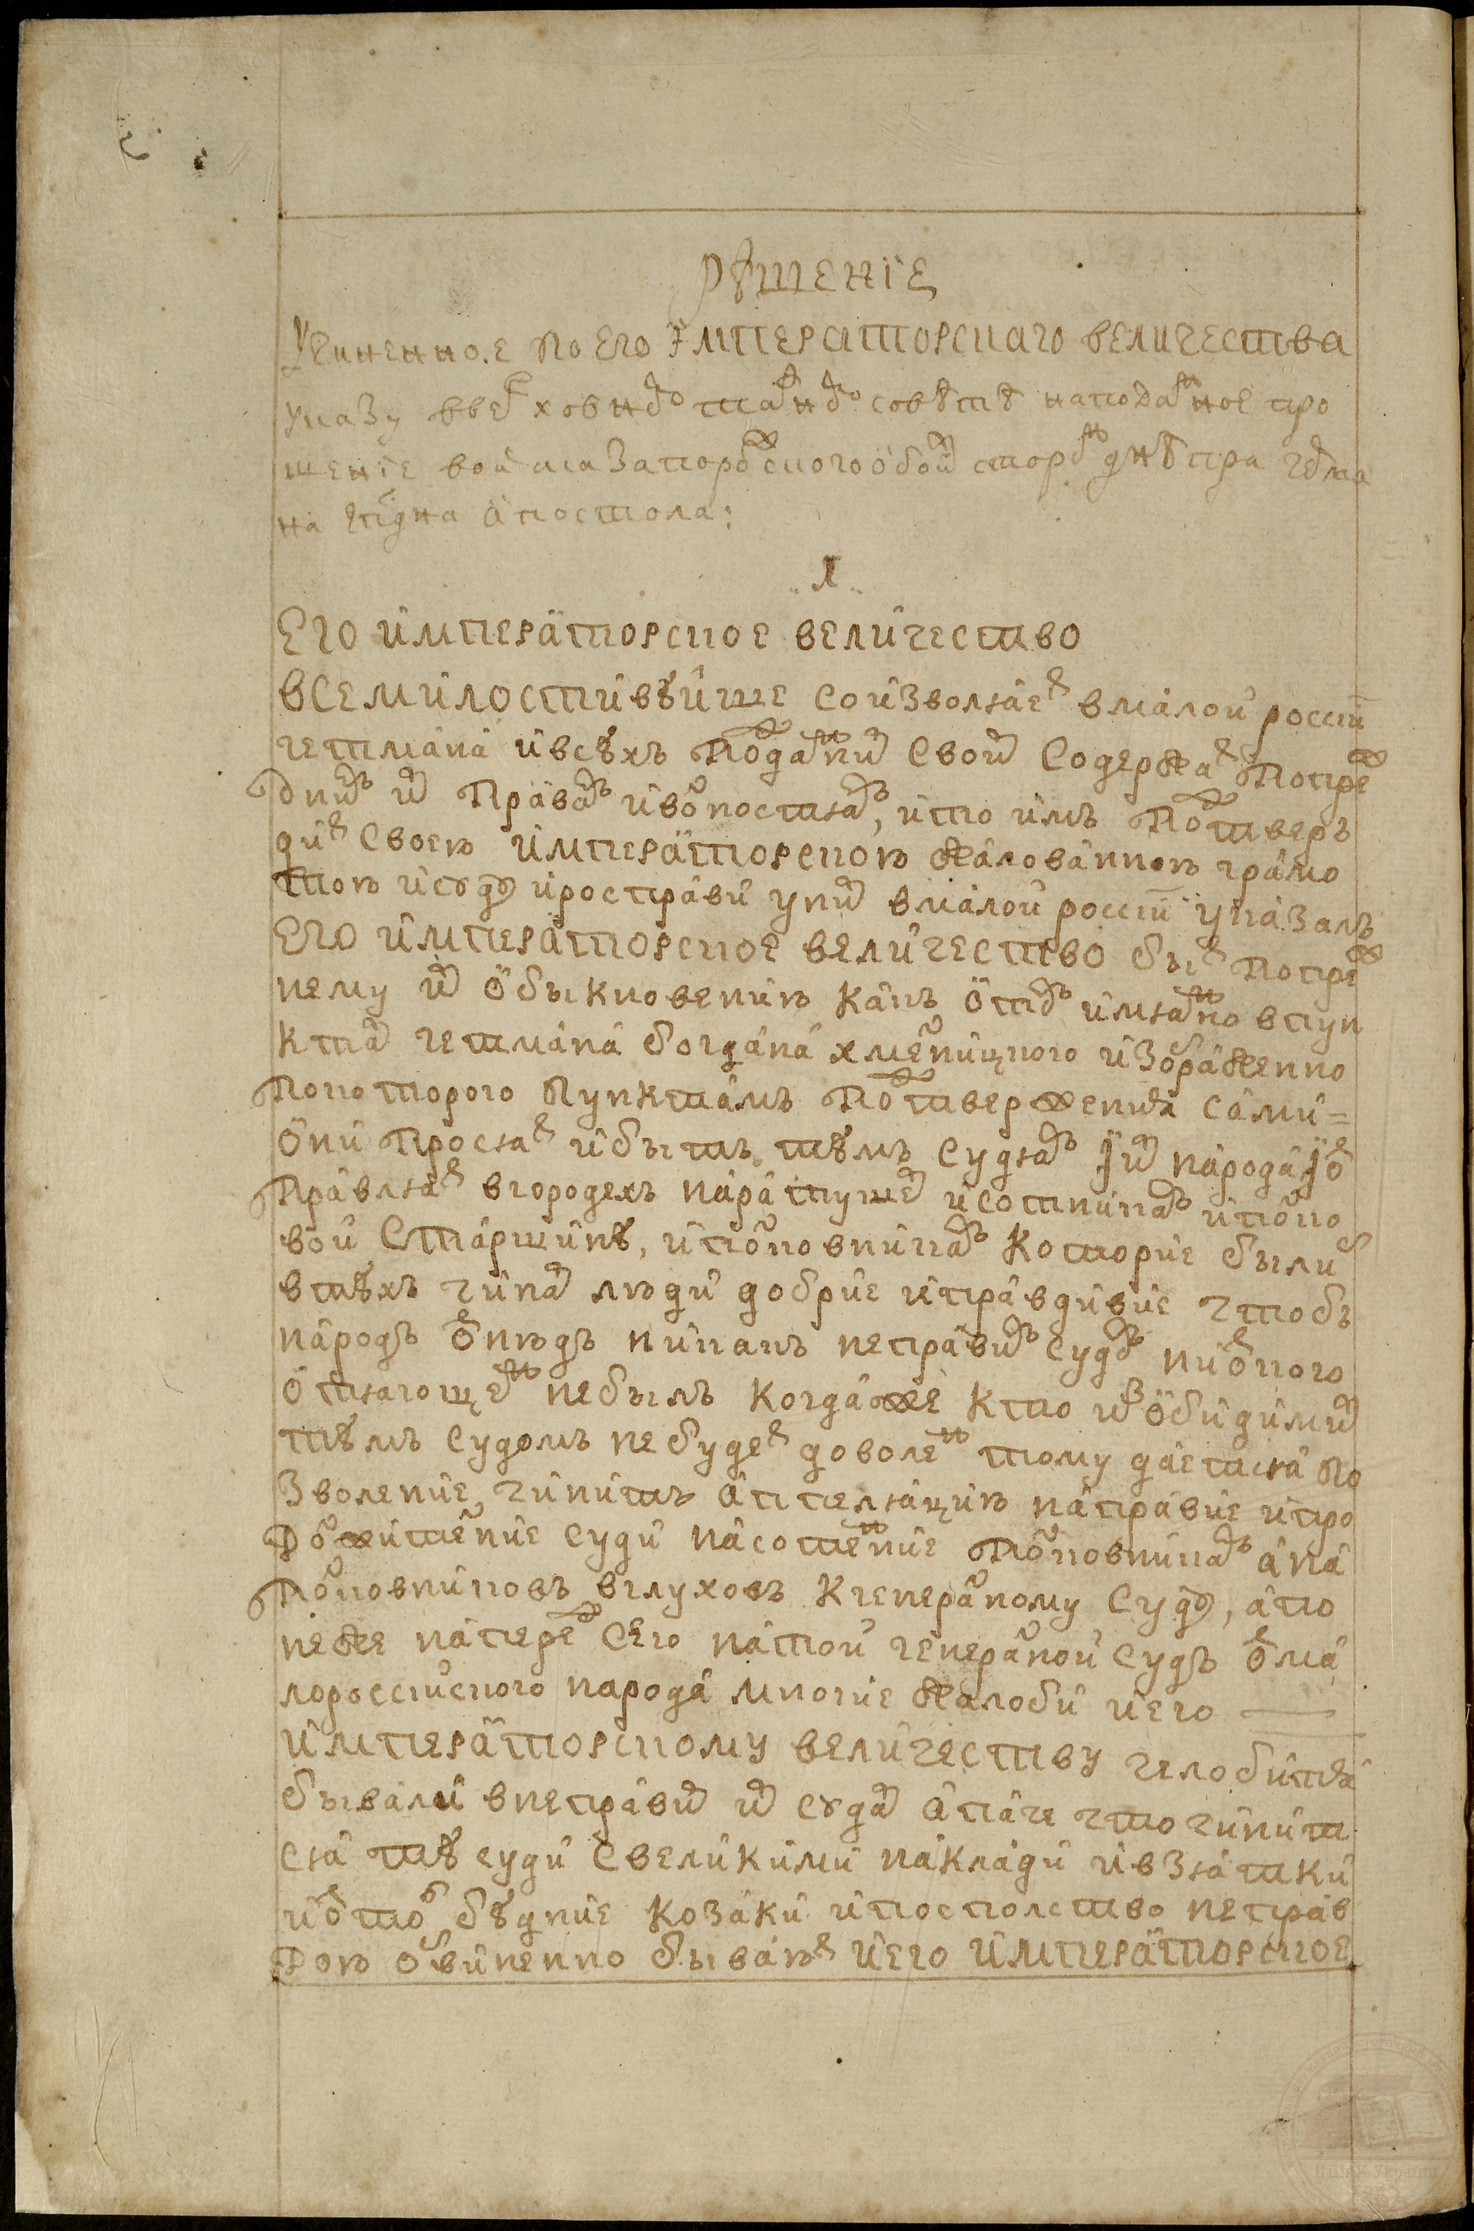 Рѣшенїе
Учиненное по Его Імператорскаго величества
указу вверховномъ тайномъ совѣтѣ наподанное про
шенїе войска Запорожского обоихъ сторонъ днѣпра гетма
на Данила Апостола:
1
Его императорское величество
всемилостивѣише соизволяетъ вмалой россіи
гетмана ивсѣхъ подданихъ своихъ содержать попреж
днимъ ихъ правамъ ивольностямъ, ипо имъ потверъ
дитъ своею императорскою жалованною грамо
тою исуду ирасправи унихъ вмалой россіи указалъ
Его императорское величество быть попреж
нему ихъ обыкновению какъ отомъ имянно впун
ктахъ гетмана богдана хмелницкого изображенно
покоторого пунктамъ потвержения сами=
они просятъ ибыть тѣмъ судямъ изъ народа ихъ
правлятъ вгородехъ наратушехъ исотникамъ иполко
вой старшинѣ, иполковникамъ которие былиб
втѣхъ чинахъ люди добрие иправдивие чтобъ
народъ отнюдъ никакъ неправимъ судомъ ниотного
отягощенъ небылъ когдаже кто изобидимихъ
тѣмъ судомъ небудетъ доволенъ тому даетися по
зволение чинить аппеляцию направие ипро
должителние суди насотенние полковникамъ ана
полковниковъ вглуховъ кгенералному суду, апо
неже напередъ сего натой генералной судъ отма
лороссійского народа многие жалоби иего
императорскому величеству челобитя
бывали внеправихъ ихъ судахъ апаче что чинит
ся тѣ суди свеликими наклади ивзятки
иотого бѣдние козаки ипосполство неправ
дою обвиненно бываютъ иего императорское